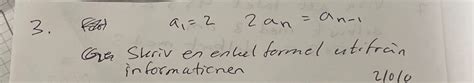 3. a₁ = 2 2aₙ = aₙ₋₁
Skriv en enkel formel utifrån
informationen
2/0/0